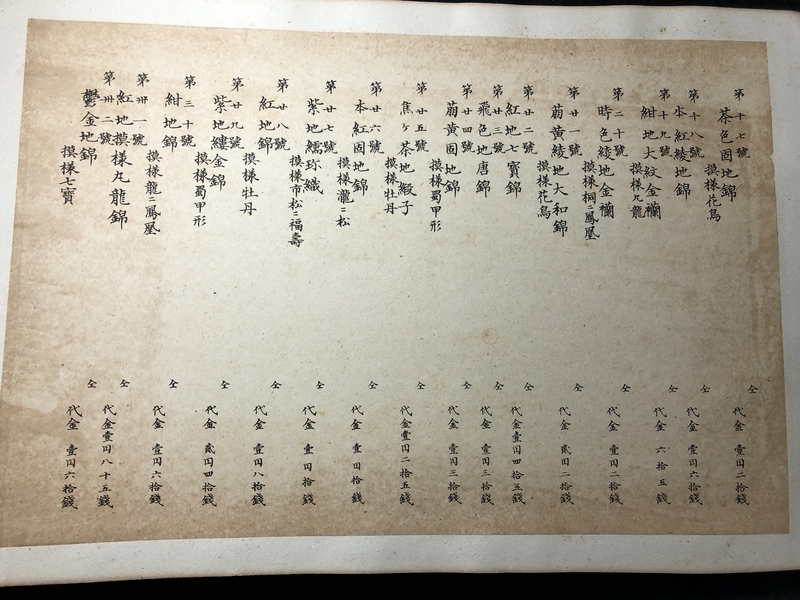 第十七號
茶色固地錦
摸樣花鳥
仝
代金壹円二拾錢
第十八號
本紅綾地錦
仝
代金壹円六拾錢
第十九號
紺地大紋金襴
摸樣丸龍
仝
代金六拾五錢
第二十號
時色綾地金襴
摸樣桐ニ鳳凰
仝
代金壹円二拾錢
第廿一號
萠黄綾地大和錦
摸樣花鳥
仝
代金貳円二拾錢
第廿二號
紅地七寶錦
仝
代金壹円四拾五錢
第廿三號
飛色地唐錦
仝
代金壹円三拾錢
第廿四號
萠黄固地錦
摸樣蜀甲形
仝
代金壹円三拾錢
第廿五號
焦ケ茶地緞子
摸樣牡丹
仝
代金壹円二拾五錢
第廿六號
本紅固地錦
摸樣瀧ニ松
仝
代金壹円拾錢
第廿七號
紫地繻珎織
摸樣市松ニ福壽
仝
代金壹円拾錢
第廿八號
紅地錦
摸樣牡丹
仝
代金壹円八拾錢
第廿九號
紫地縷金錦
摸樣蜀甲形
仝
代金貳円四拾錢
第三十號
紺地錦
摸樣龍ニ鳳凰
仝
代金壹円六拾錢
第卅一號
紅地摸樣丸龍錦
仝
代金壹円八十五錢
第卅二號
鬱金地錦
摸樣七寶
仝
代金壹円六拾錢